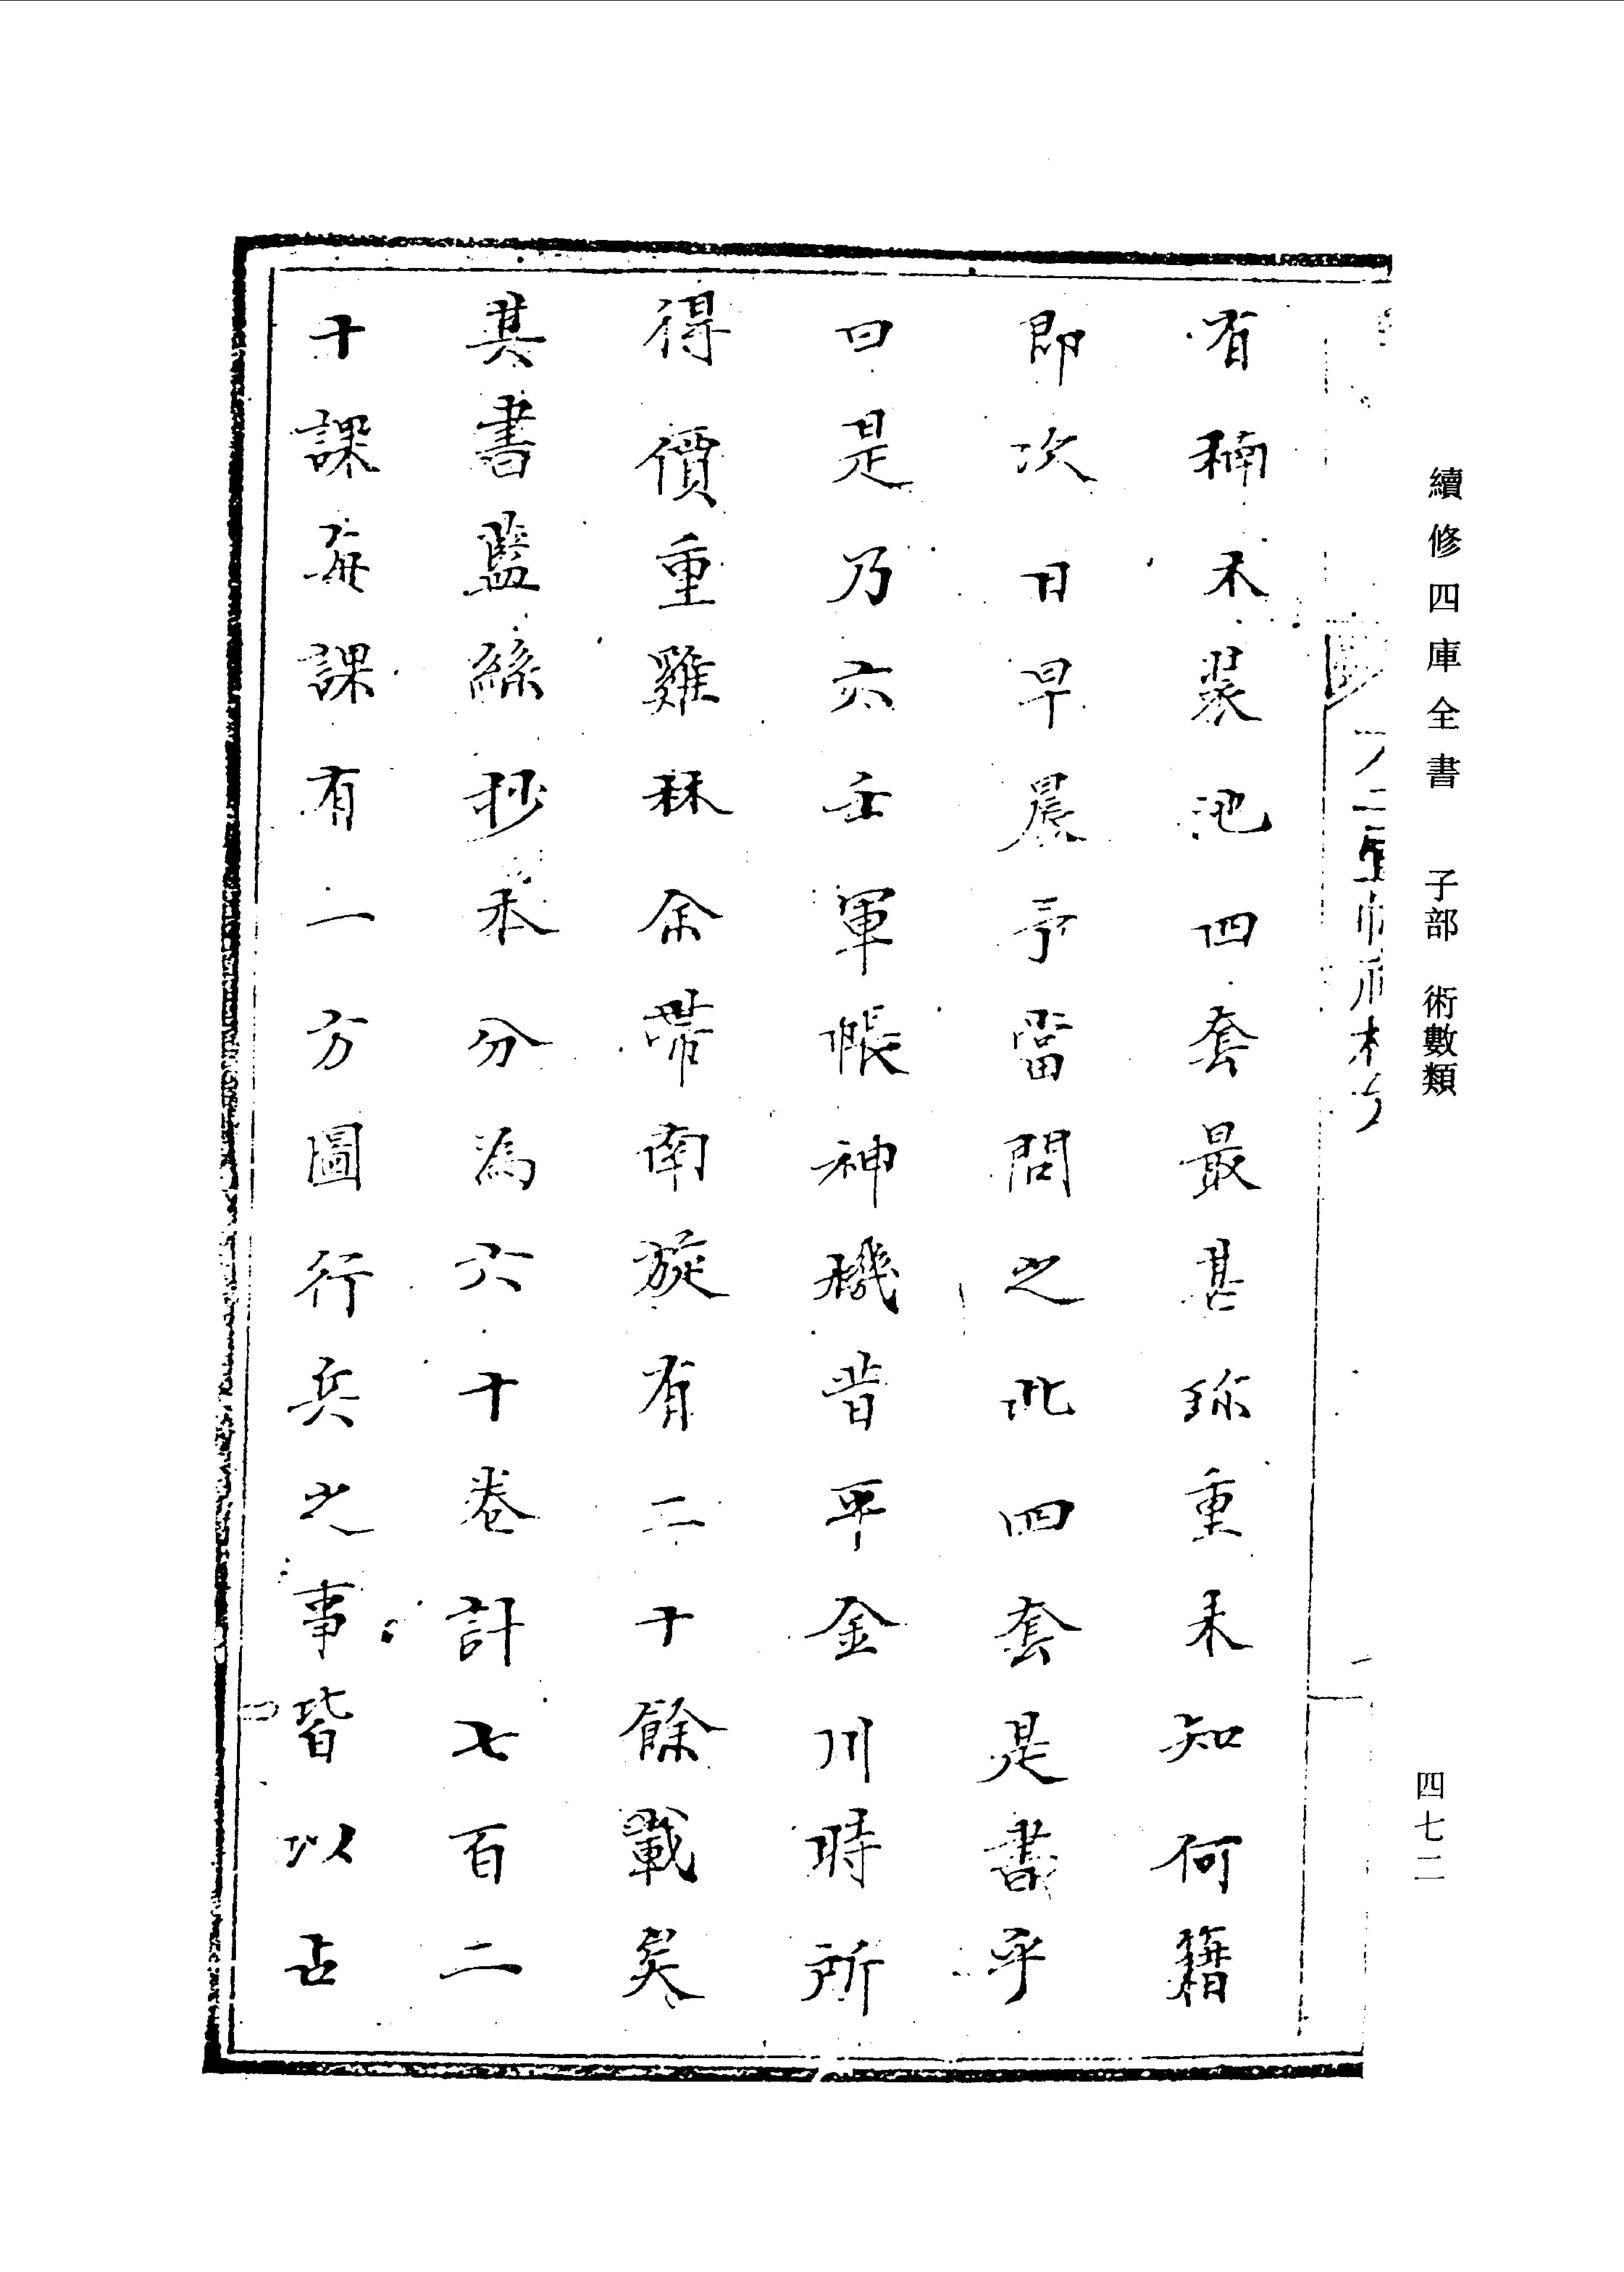 續修四庫全書 子部 術數類
四七二
有楠木裝池四套最甚珍重未知何籍
即次日早晨予當問之此四套是書乎
曰是乃六壬軍帳神機昔平金川時所
得價重雞林余帶南旋有二十餘載矣
其書藍絲抄本分為六十卷計七百二
十課每課有一方圖行兵之事皆以占